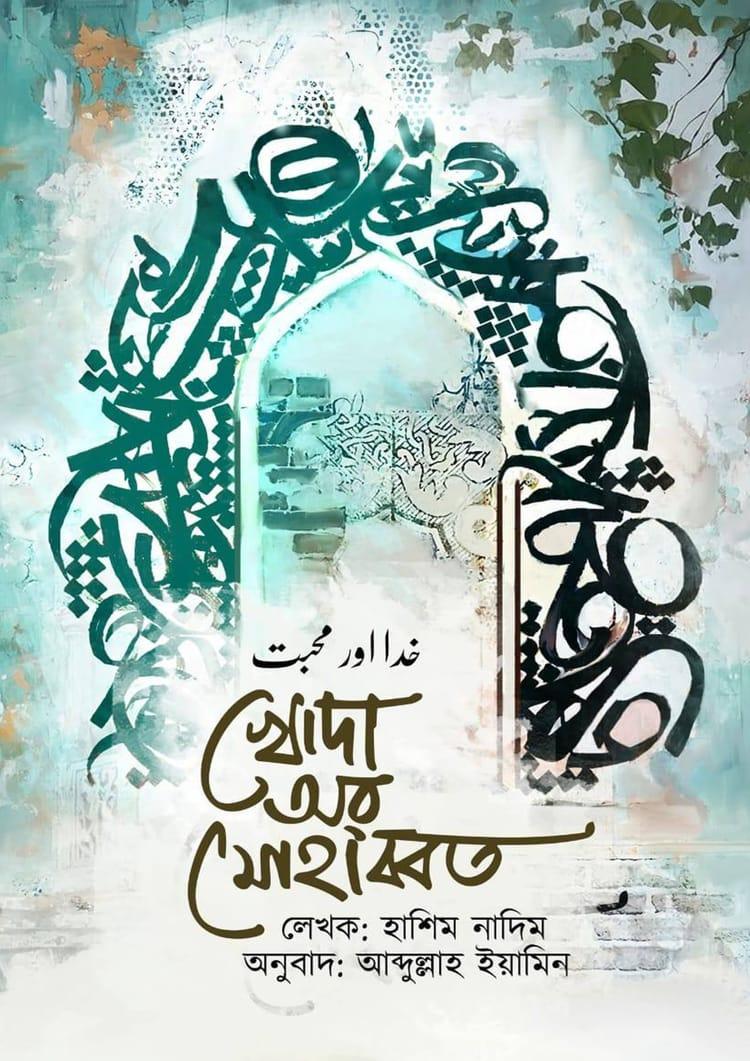 خدا اور محبت
খোদা
অর
মোহাব্বত
লেখক: হাশিম নাদিম
অনুবাদ: আব্দুল্লাহ ইয়ামিন